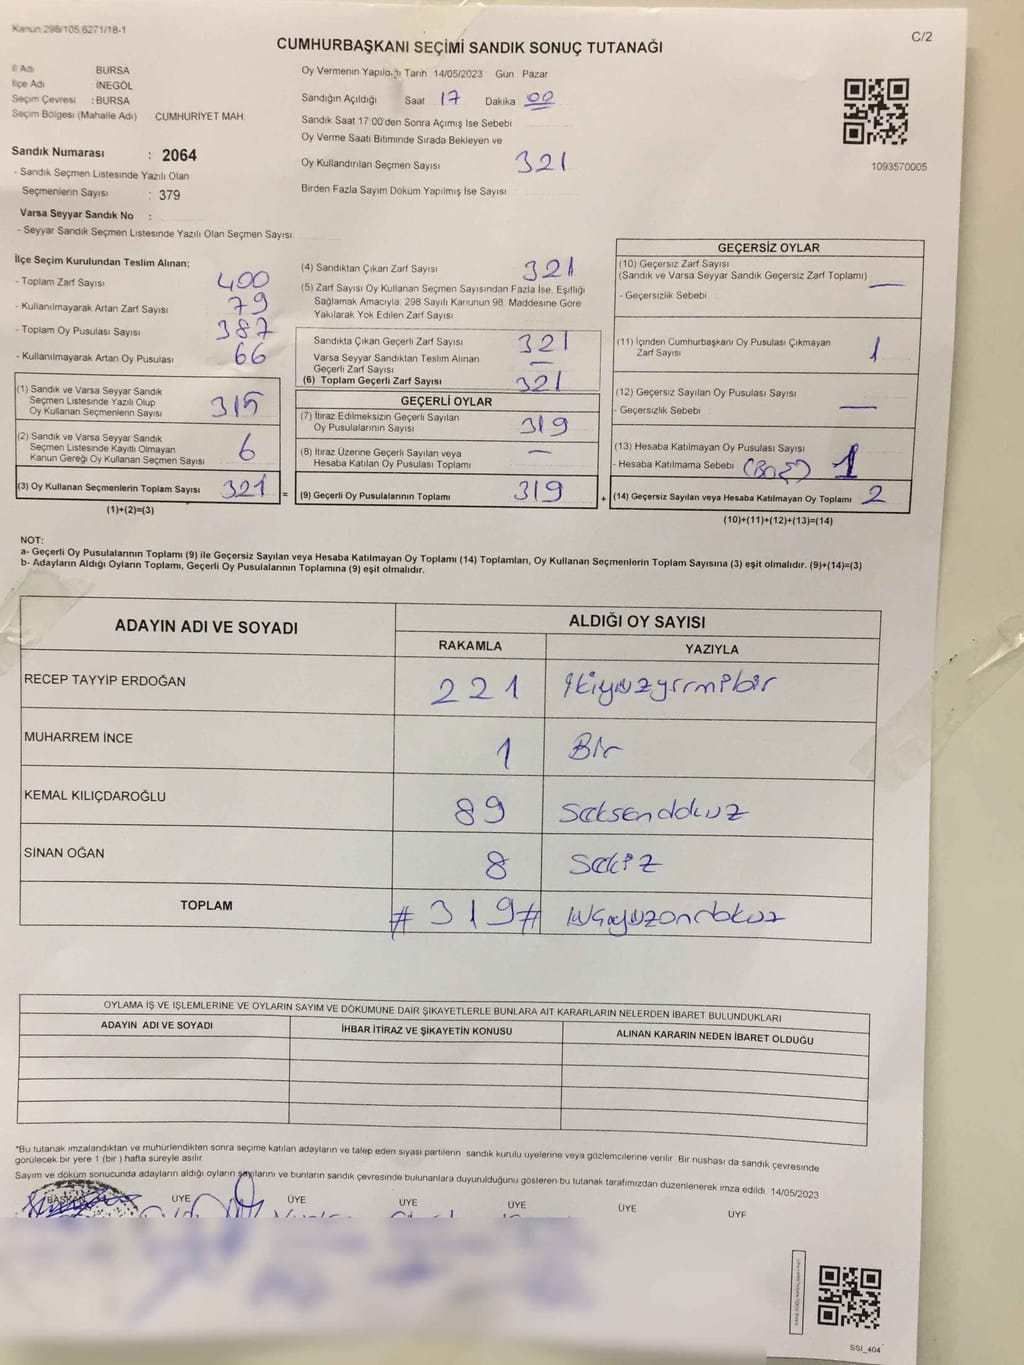 Kanun:298/105,6271/18-1
C/2
CUMHURBAŞKANI SEÇİMİ SANDIK SONUÇ TUTANAĞI
İl Adı BURSA
İlçe Adı İNEGÖL
Seçim Çevresi : BURSA
Seçim Bölgesi (Mahalle Adı) CUMHURİYET MAH.
Sandık Numarası : 2064
- Sandık Seçmen Listesinde Yazılı Olan
Seçmenlerin Sayısı : 379
Varsa Seyyar Sandık No :
- Seyyar Sandık Seçmen Listesinde Yazılı Olan Seçmen Sayısı:
Oy Vermenin Yapıldığı Tarih 14/05/2023 Gün Pazar
Sandığın Açıldığı Saat 17 Dakika 00
Sandık Saat 17:00'den Sonra Açımış İse Sebebi
Oy Verme Saati Bitiminde Sırada Bekleyen ve
Oy Kullandırılan Seçmen Sayısı 321
Birden Fazla Sayım Döküm Yapılmış İse Sayısı
1093570005
İlçe Seçim Kurulundan Teslim Alınan;
- Toplam Zarf Sayısı 400
- Kullanılmayarak Artan Zarf Sayısı 79
- Toplam Oy Pusulası Sayısı 387
- Kullanılmayarak Artan Oy Pusulası 66
(1) Sandık ve Varsa Seyyar Sandık
Seçmen Listesinde Yazılı Olup
Oy Kullanan Seçmenlerin Sayısı 315
(2) Sandık ve Varsa Seyyar Sandık
Seçmen Listesinde Kayıtlı Olmayan
Kanun Gereği Oy Kullanan Seçmen Sayısı 6
(3) Oy Kullanan Seçmenlerin Toplam Sayısı 321 =
(1)+(2)=(3)
(4) Sandıktan Çıkan Zarf Sayısı 321
(5) Zarf Sayısı Oy Kullanan Seçmen Sayısından Fazla İse, Eşitliği
Sağlamak Amacıyla, 298 Sayılı Kanunun 98. Maddesine Göre
Yakılarak Yok Edilen Zarf Sayısı
Sandıkta Çıkan Geçerli Zarf Sayısı 321
Varsa Seyyar Sandıktan Teslim Alınan
Geçerli Zarf Sayısı —
(6) Toplam Geçerli Zarf Sayısı 321
GEÇERLİ OYLAR
(7) İtiraz Edilmeksizin Geçerli Sayılan
Oy Pusulalarının Sayısı 319
(8) İtiraz Üzerine Geçerli Sayılan veya
Hesaba Katılan Oy Pusulası Toplamı —
(9) Geçerli Oy Pusulalarının Toplamı 319 +
GEÇERSİZ OYLAR
(10) Geçersiz Zarf Sayısı
(Sandık ve Varsa Seyyar Sandık Geçersiz Zarf Toplamı) —
- Geçersizlik Sebebi
(11) İçinden Cumhurbaşkanı Oy Pusulası Çıkmayan
Zarf Sayısı 1
(12) Geçersiz Sayılan Oy Pusulası Sayısı
- Geçersizlik Sebebi —
(13) Hesaba Katılmayan Oy Pusulası Sayısı
- Hesaba Katılmama Sebebi (BOŞ) 1
(14) Geçersiz Sayılan veya Hesaba Katılmayan Oy Toplamı 2
(10)+(11)+(12)+(13)=(14)
NOT:
a- Geçerli Oy Pusulalarının Toplamı (9) ile Geçersiz Sayılan veya Hesaba Katılmayan Oy Toplamı (14) Toplamları, Oy Kullanan Seçmenlerin Toplam Sayısına (3) eşit olmalıdır. (9)+(14)=(3)
b- Adayların Aldığı Oyların Toplamı, Geçerli Oy Pusulalarının Toplamına (9) eşit olmalıdır.
ADAYIN ADI VE SOYADI
ALDIĞI OY SAYISI
RAKAMLA YAZIYLA
RECEP TAYYİP ERDOĞAN 221 İkiyüzyirmibir
MUHARREM İNCE 1 Bir
KEMAL KILIÇDAROĞLU 89 Seksendokuz
SİNAN OĞAN 8 Sekiz
TOPLAM #319# üçyüzondokuz
OYLAMA İŞ VE İŞLEMLERİNE VE OYLARIN SAYIM VE DÖKÜMÜNE DAİR ŞİKAYETLERLE BUNLARA AİT KARARLARIN NELERDEN İBARET BULUNDUKLARI
ADAYIN ADI VE SOYADI İHBAR İTİRAZ VE ŞİKAYETİN KONUSU ALINAN KARARIN NEDEN İBARET OLDUĞU
*Bu tutanak imzalandıktan ve mühürlendikten sonra seçime katılan adayların ve talep eden siyasi partilerin sandık kurulu üyelerine veya gözlemcilerine verilir. Bir nüshası da sandık çevresinde
görülecek bir yere 1 (bir) hafta süreyle asılır.
Sayım ve döküm sonucunda adayların aldığı oyların sayılarını ve bunların sandık çevresinde bulunanlara duyurulduğunu gösteren bu tutanak tarafımızdan düzenlenerek imza edildi. 14/05/2023
BAŞKAN ÜYE ÜYE ÜYE ÜYE ÜYE ÜYE
SSI_404